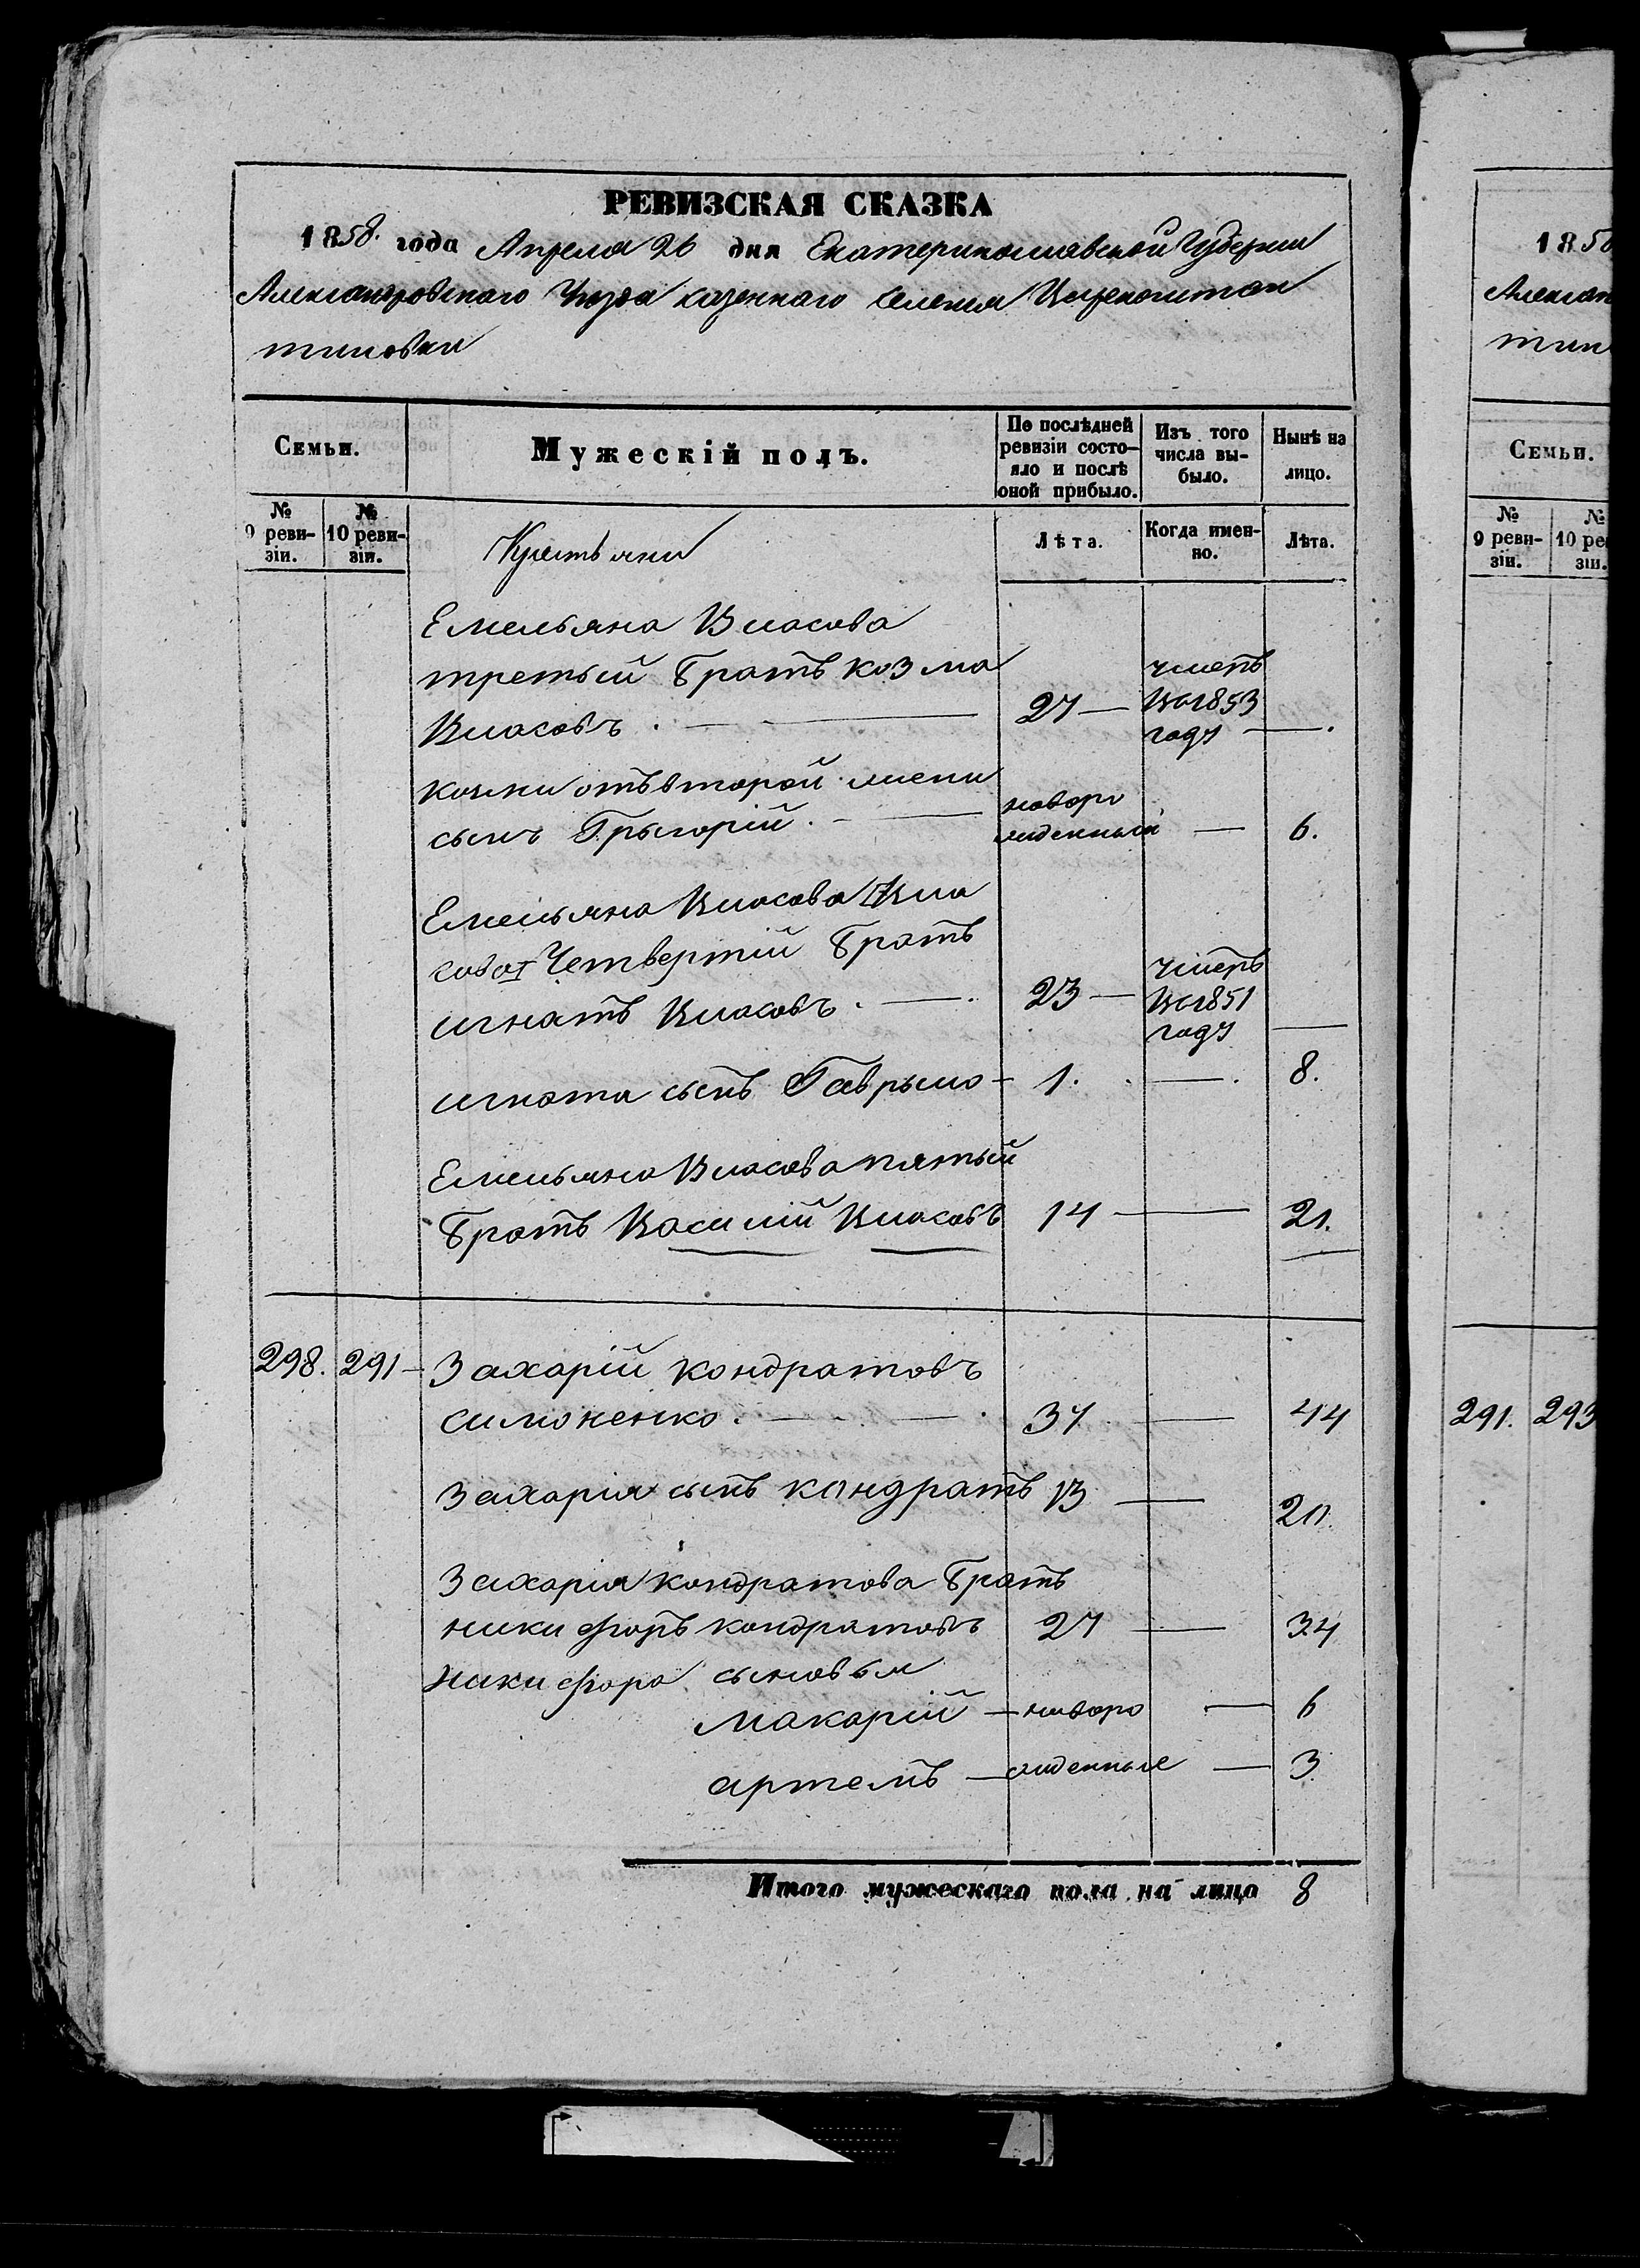 РЕВИЗСКАЯ СКАЗКА
1858. года Апреля 26 дня Екатеринославской Губернии
Александровского Уезда казенного Селения Цареконстан
тиновки
Семьи.
Мужескій полъ.
По послѣдней ревизіи состо-
яло и послѣ оной прибыло.
Изъ того числа вы-
было.
Нынѣ на лицо.
№ 9 реви-
зіи.
№ 10 реви-
зіи.
Крестьяни
Лѣта.
Когда имен-
но.
Лѣта.
Емельяна Власова
третьий Братъ козма
Власовъ. 27 — умеръ
В 1853
году —.
козми отъ второй жены
сынъ Грыгорій. — новоро
жденный — 6.
Емельяна Власова Вла
сова Четвертій Братъ
игнатъ Власовъ. — 23 — умеръ
В 1851
году —
игната сынъ Гаврыло — 1. — 8.
Емельяна Власова пятый
Братъ Василій Власовъ 14 — 21.
298. 291 — Захарій кондратовъ
симоненко. — 37 — 44
Захарія сынъ кондратъ 13 — 20.
Захарія кондратова Братъ
никифоръ кондратовъ 27 — 34
никифора сыновья
Макарій — новоро — 6
артемъ — жденные — 3
Итого мужескаго пола на лицо 8
1858
Алексан
тин
Семьи.
№ 9 реви-
зіи.
№ 10 ре
зіи.
291. 293